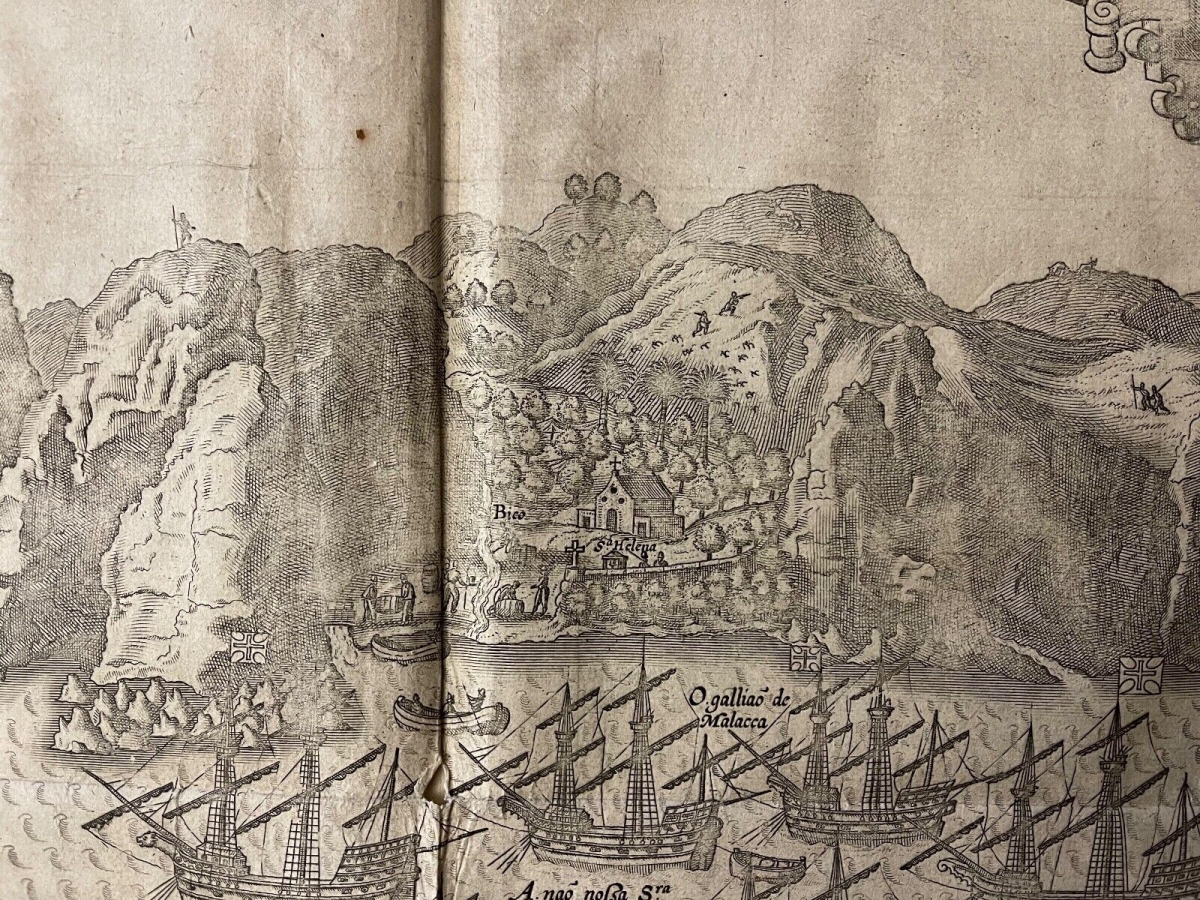 Bico
Sᵗᵃ Helena
O. galliaõ de
Malacca
A. naõ noſsa S.ʳᵃ